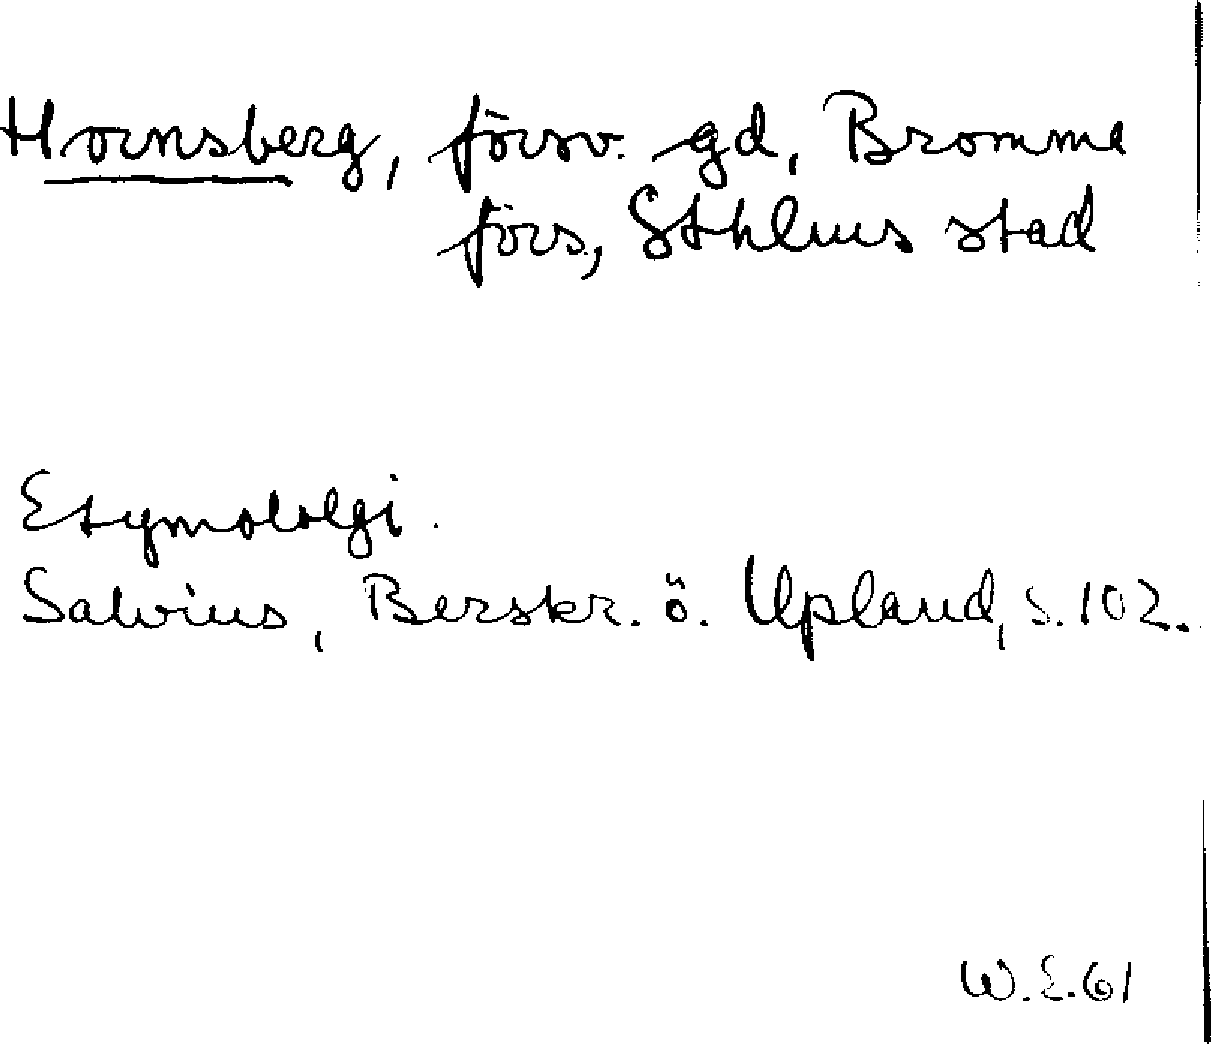 Hornsberg, försv. gd, Bromma
förs, Sthlms stad
Etymololgi.
Salvius, Berskr. ö. Upland, s. 102.
W.E.61